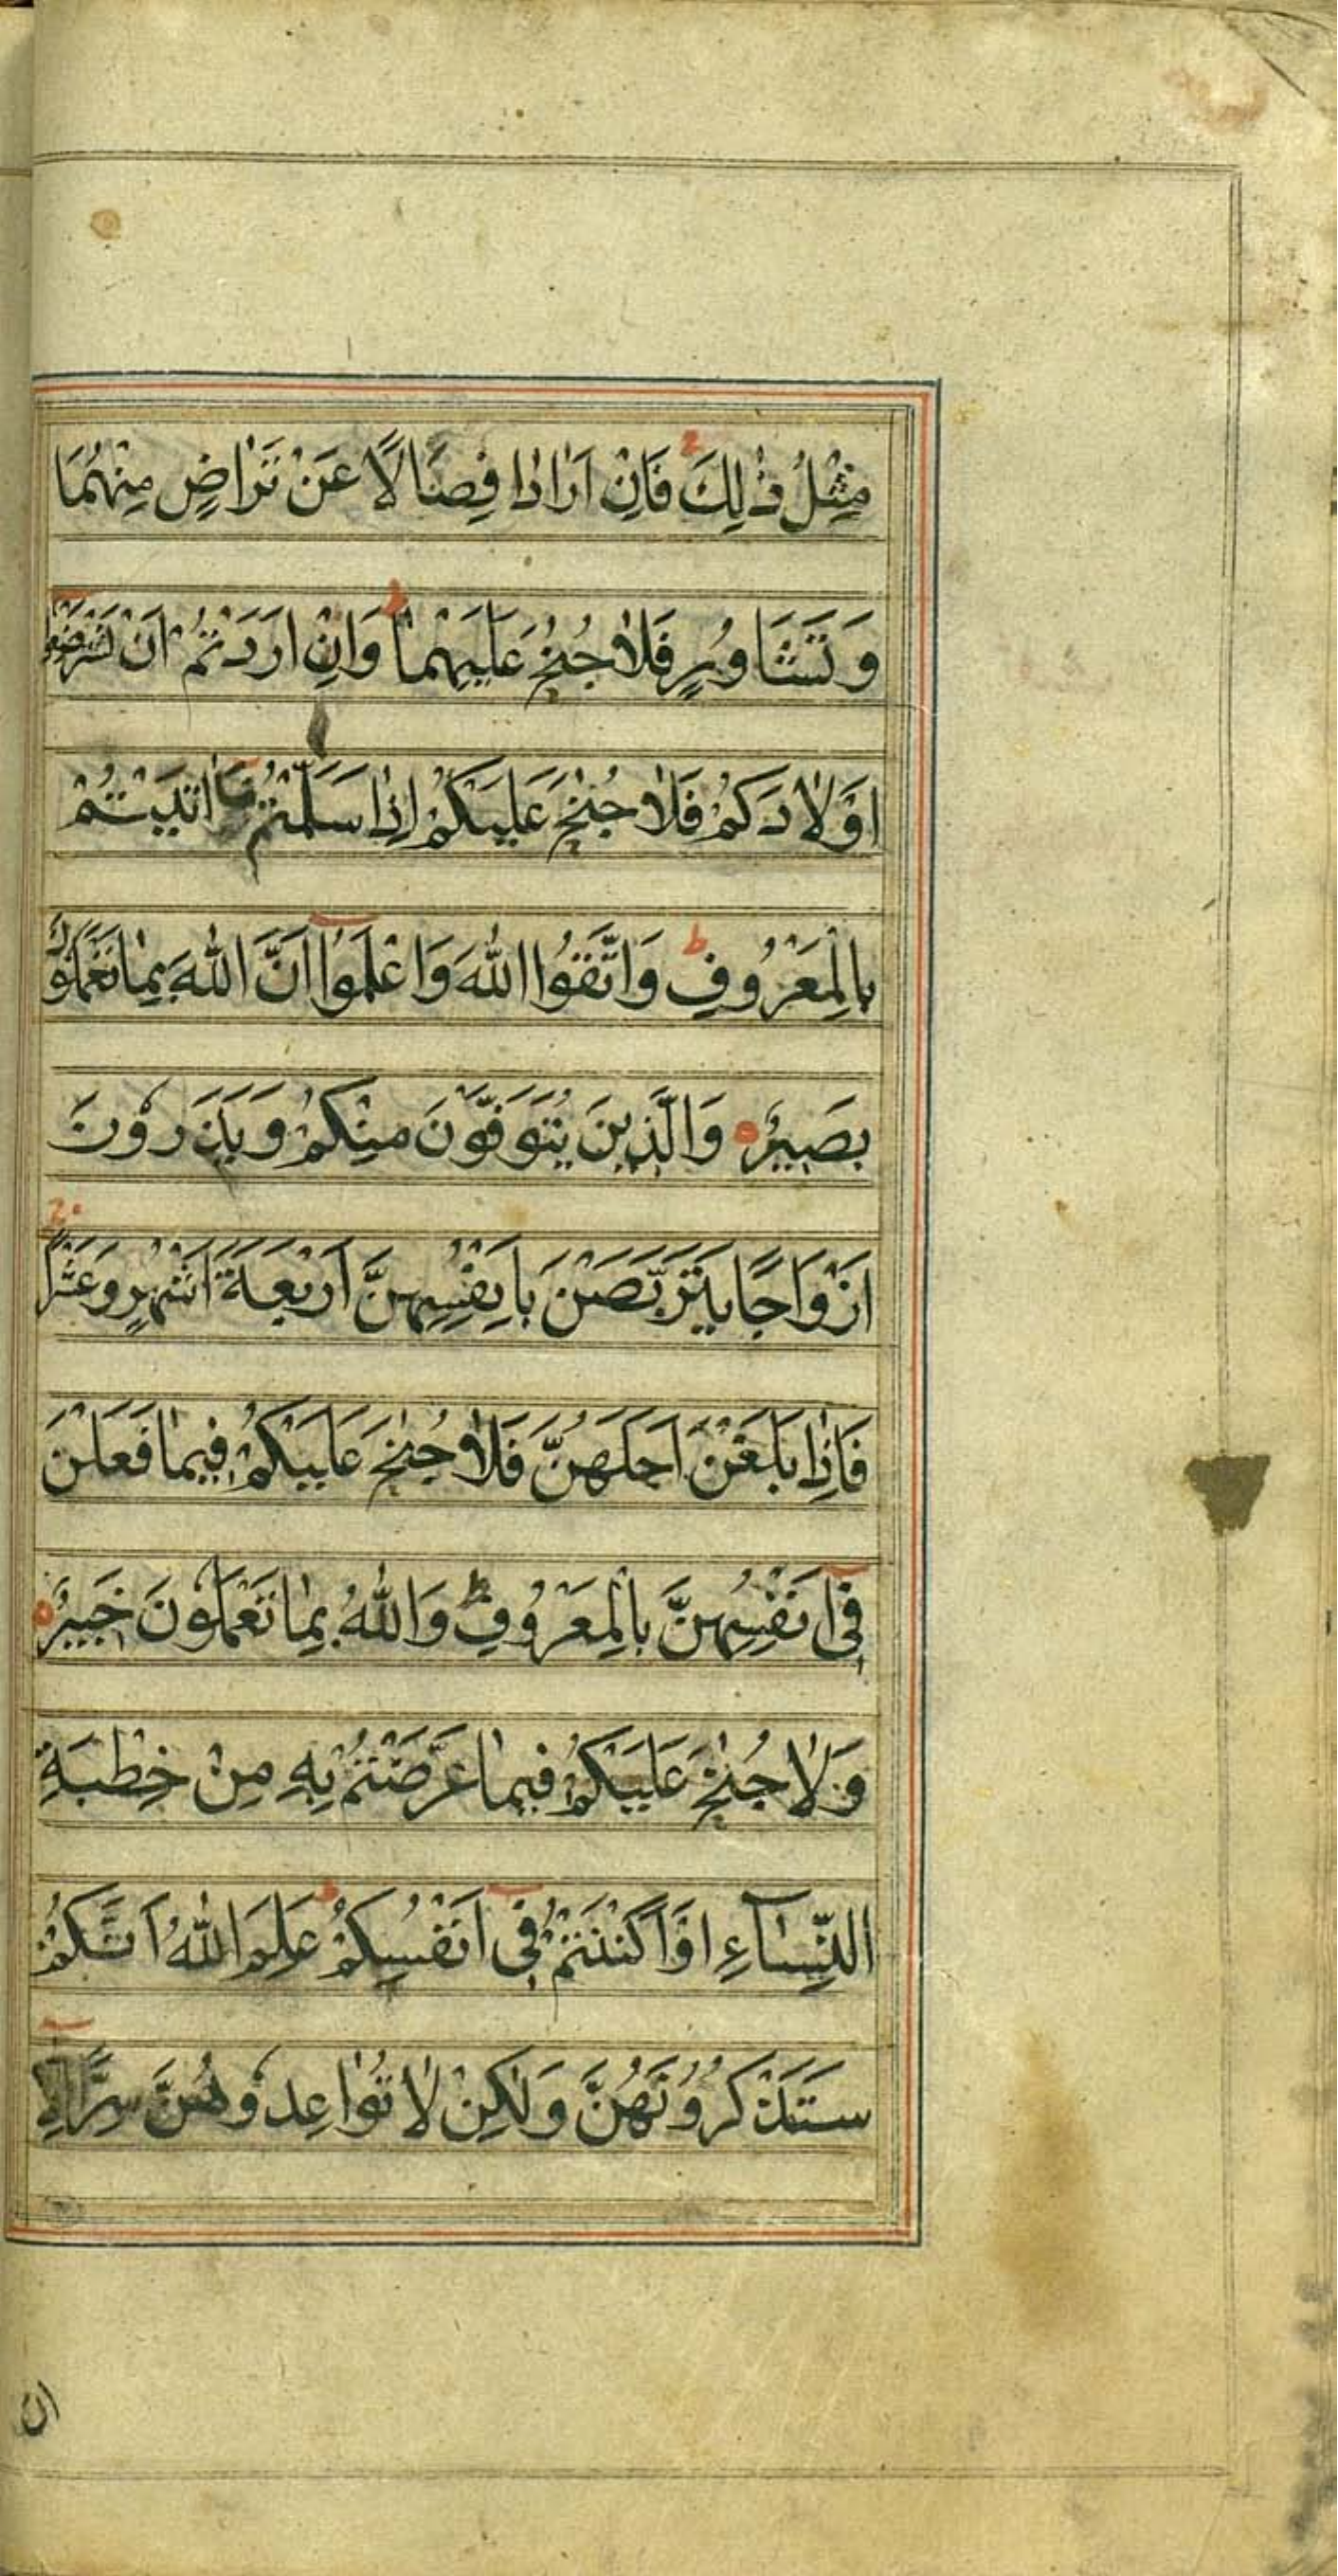 مِثْلُ ذٰلِكَ فَاِنْ اَرَادَا فِصَالًا عَنْ تَرَاضٍ مِنْهُمَا
وَتَشَاوُرٍ فَلَا جُنٰحَ عَلَيْهِمَا ط وَاِنْ اَرَدْتُمْ اَنْ تَسْتَرْضِعُوا
اَوْلَادَكُمْ فَلَا جُنٰحَ عَلَيْكُمْ اِذَا سَلَّمْتُمْ مَا اٰتَيْتُمْ
بِالْمَعْرُوفِ ط وَاتَّقُوا اللّٰهَ وَاعْلَمُوا اَنَّ اللّٰهَ بِمَا تَعْمَلُونَ
بَصِيرٌ وَالَّذِينَ يُتَوَفَّوْنَ مِنْكُمْ وَيَذَرُونَ
اَزْوَاجًا يَتَرَبَّصْنَ بِاَنْفُسِهِنَّ اَرْبَعَةَ اَشْهُرٍ وَعَشْرًا
فَاِذَا بَلَغْنَ اَجَلَهُنَّ فَلَا جُنٰحَ عَلَيْكُمْ فِيمَا فَعَلْنَ
فِى اَنْفُسِهِنَّ بِالْمَعْرُوفِ ط وَاللّٰهُ بِمَا تَعْمَلُونَ خَبِيرٌ
وَلَا جُنٰحَ عَلَيْكُمْ فِيمَا عَرَّضْتُمْ بِهِ مِنْ خِطْبَةِ
النِّسَآءِ اَوْ اَكْنَنْتُمْ فِى اَنْفُسِكُمْ ط عَلِمَ اللّٰهُ اَنَّكُمْ
سَتَذْكُرُونَهُنَّ وَلٰكِنْ لَا تُوَاعِدُوهُنَّ سِرًّا اِلَّا
ان